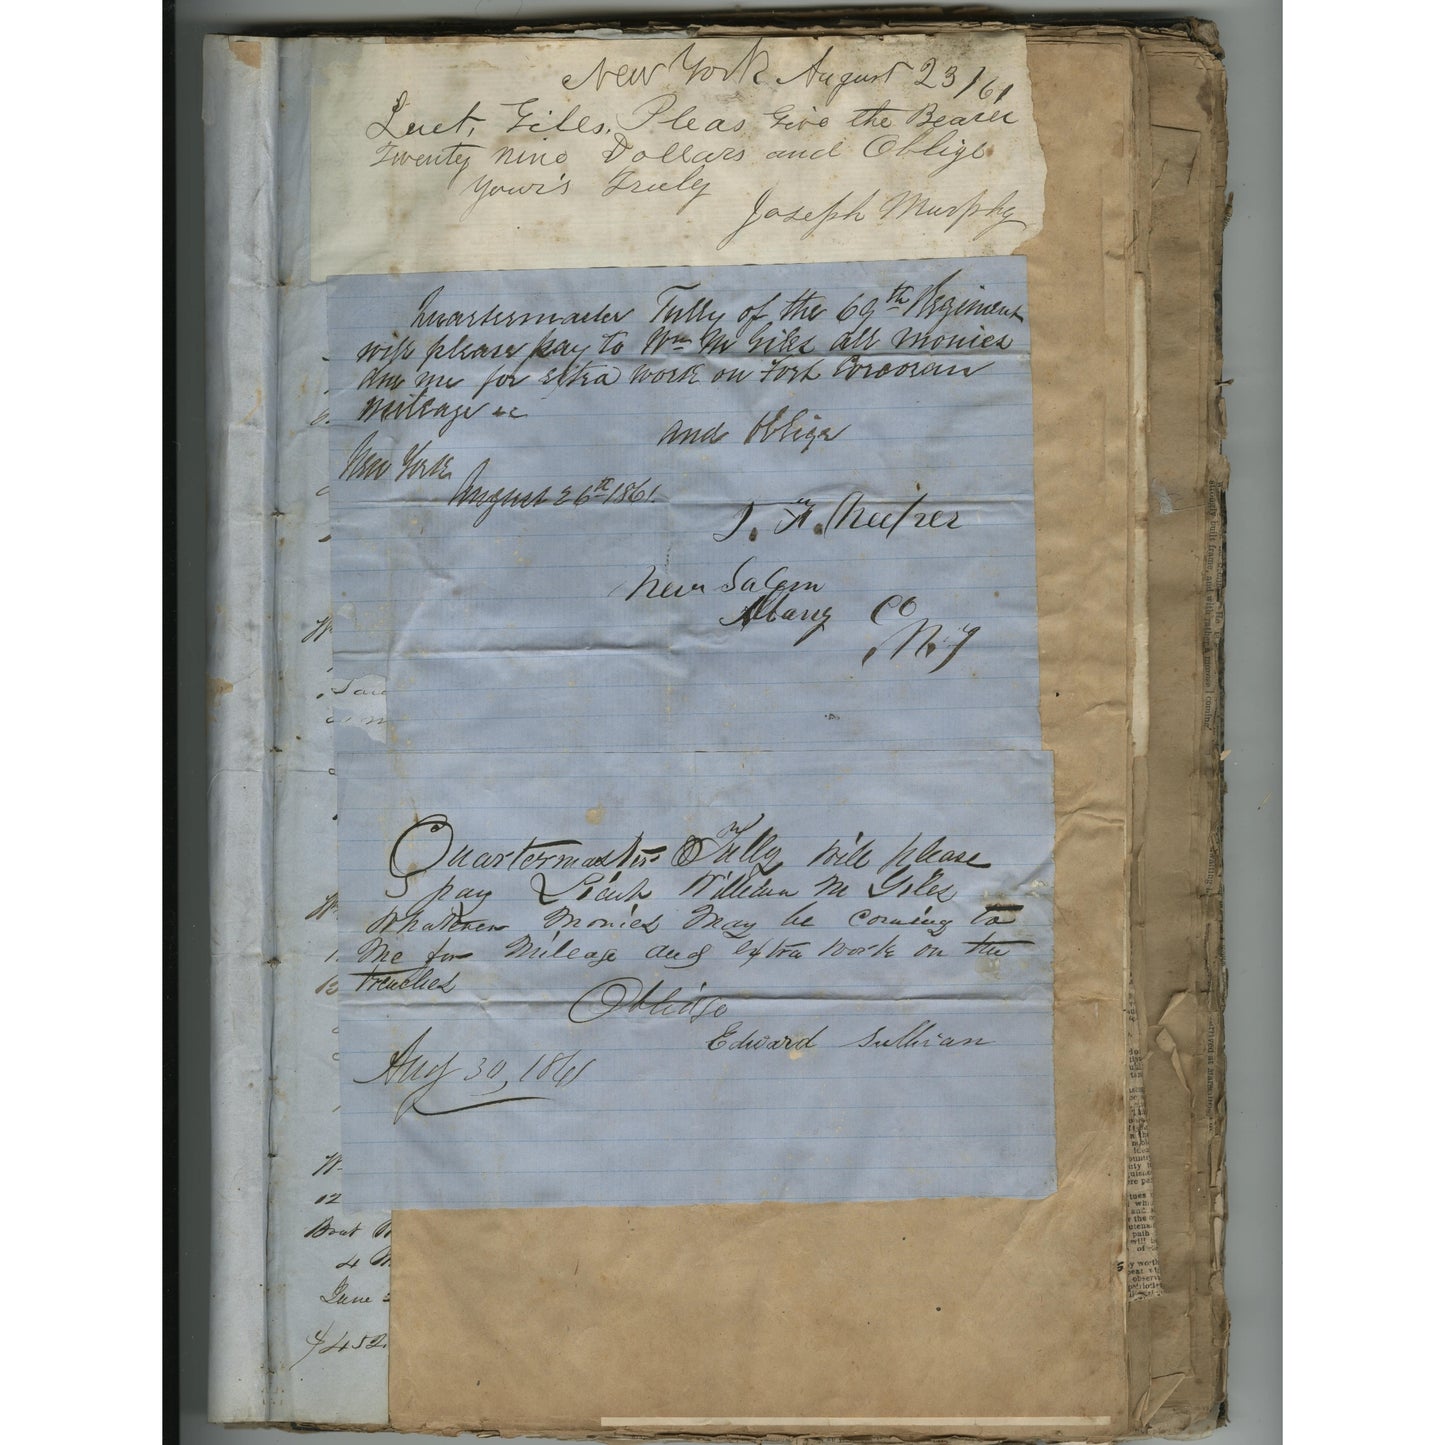 New York August 23/61
Luet, Giles, Pleas Give the Bearer
Twenty nine Dollars and Oblige
Your's Truly
Joseph Murphy
Quartermaster Tully of the 69th Regiment
will please pay to Wm M Giles all monies
due me for extra work on Fort Corcoran
mileage &c
and oblige
New York
August 26th 1861.
New Salem
Albany Co
N.Y
Quartermaster Tully will please
pay Lieut William M Giles
Whatever Monies May be coming to
Me for Mileage and extra work on the
trenches
Oblidge
Edward Sullivan
Aug 30, 1861
12
4
June
$452